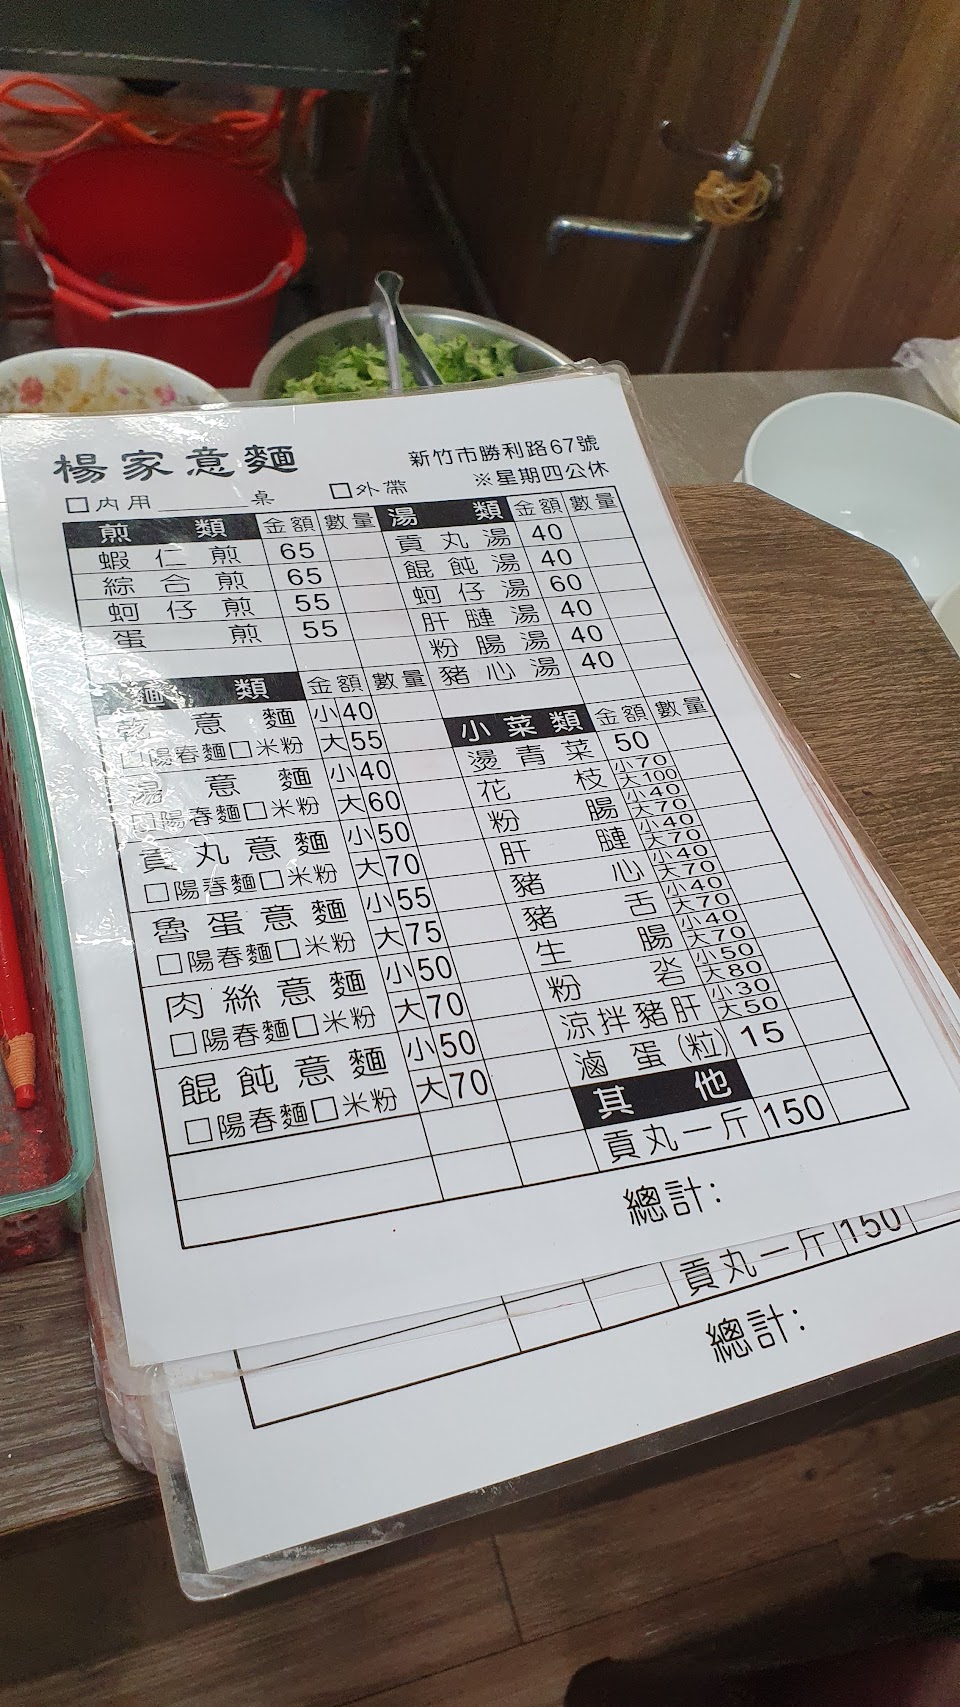 楊家意麵
新竹市勝利路67號
※星期四公休
□內用______桌 □外帶
煎類 金額 數量
蝦仁煎 65
綜合煎 65
蚵仔煎 55
蛋煎 55
麵類 金額 數量
乾意麵 小40
□陽春麵□米粉 大55
湯意麵 小40
□陽春麵□米粉 大60
貢丸意麵 小50
□陽春麵□米粉 大70
魯蛋意麵 小55
□陽春麵□米粉 大75
肉絲意麵 小50
□陽春麵□米粉 大70
餛飩意麵 小50
□陽春麵□米粉 大70
湯類 金額 數量
貢丸湯 40
餛飩湯 40
蚵仔湯 60
肝腱湯 40
粉腸湯 40
豬心湯 40
小菜類 金額 數量
燙青菜 50
花枝 小70 大100
粉腸 小40 大70
肝腱 小40 大70
豬心 小40 大70
豬舌 小40 大70
生腸 小40 大70
粉沯 小50 大80
涼拌豬肝 小30 大50
滷蛋(粒) 15
其他
貢丸一斤 150
總計:
貢丸一斤 150
總計: